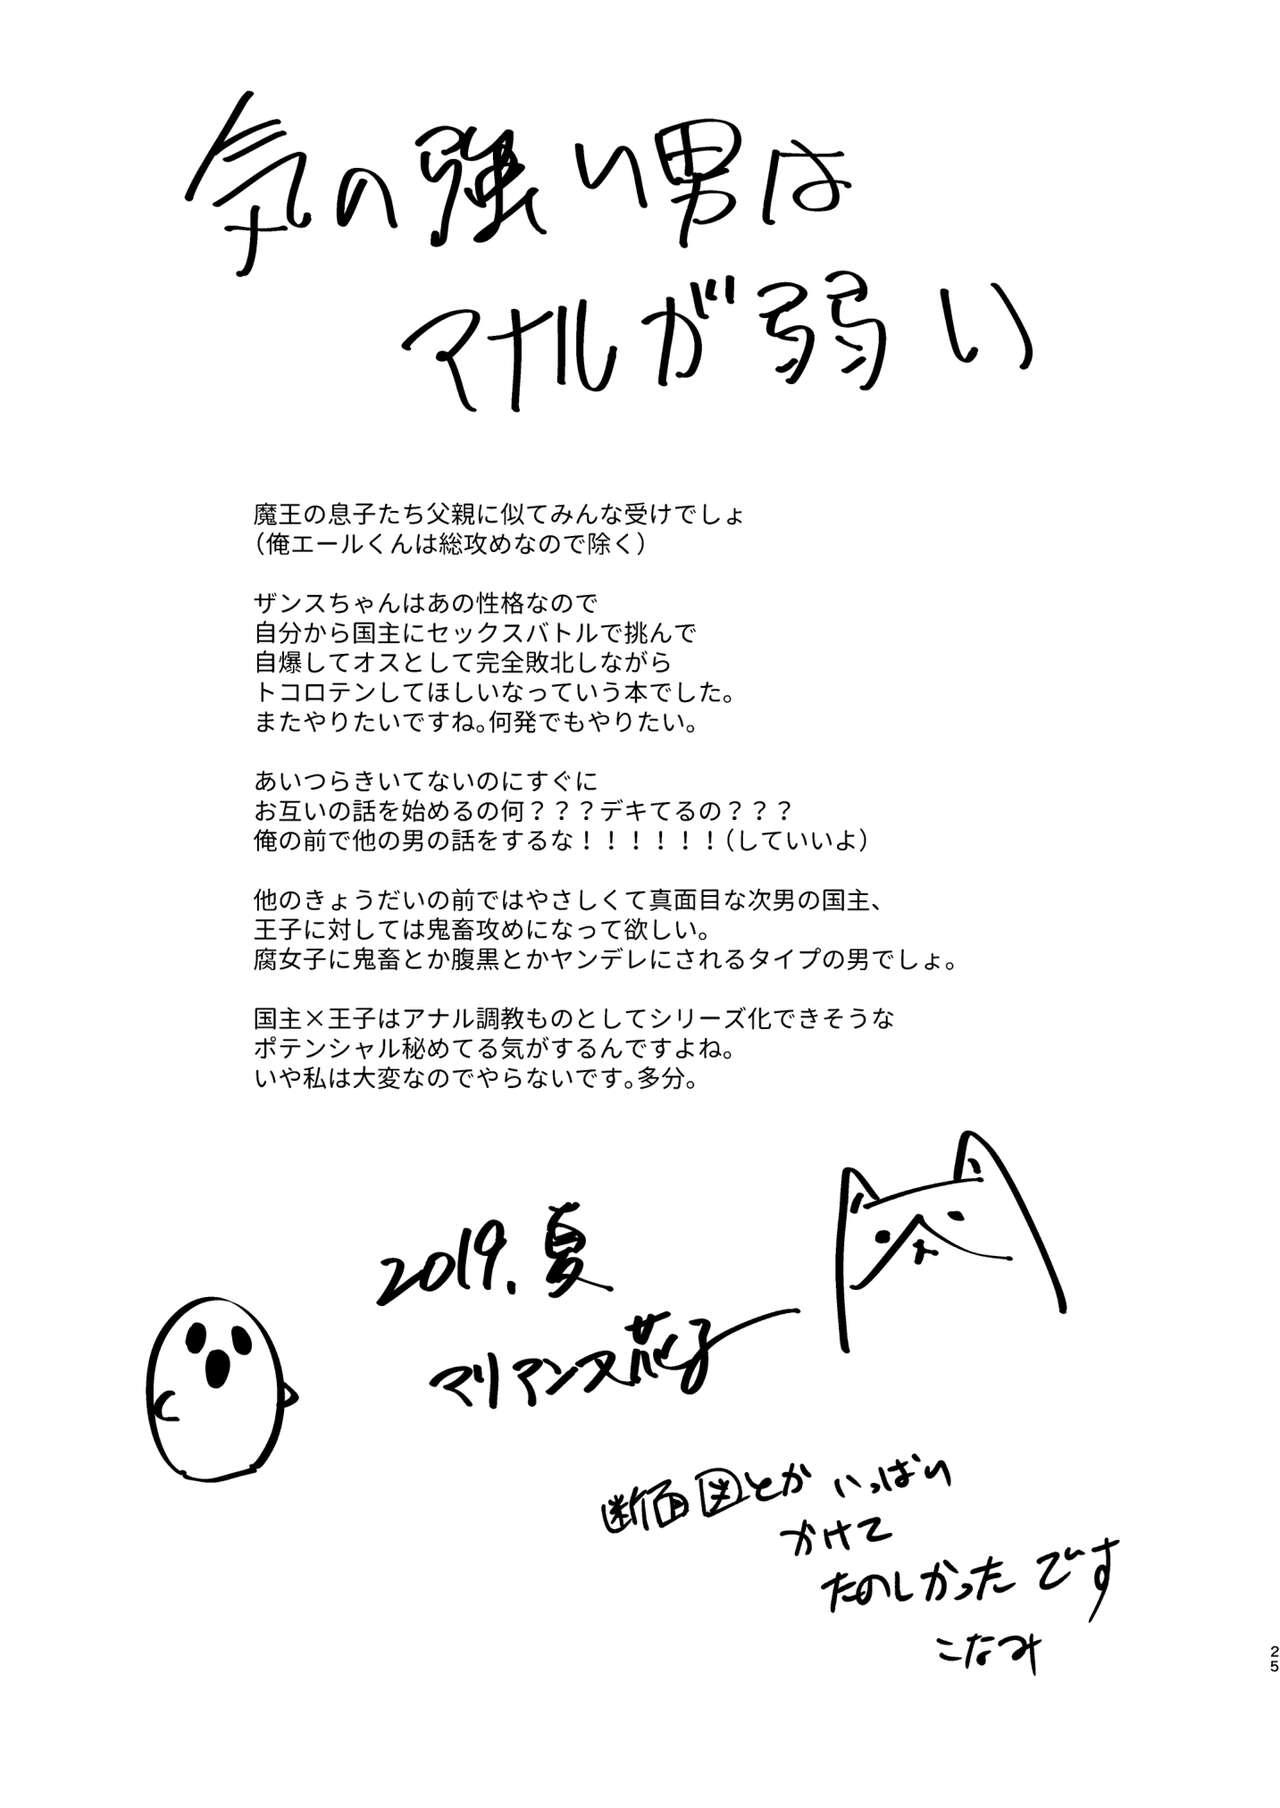 気の強い男は
アナルが弱い
魔王の息子たち父親に似てみんな受けでしょ
（俺エールくんは総攻めなので除く）
ザンスちゃんはあの性格なので
自分から国主にセックスバトルで挑んで
自爆してオスとして完全敗北しながら
トコロテンしてほしいなっていう本でした。
またやりたいですね。何発でもやりたい。
あいつらきいてないのにすぐに
お互いの話を始めるの何？？？デキてるの？？？
俺の前で他の男の話をするな！！！！！！（していいよ）
他のきょうだいの前ではやさしくて真面目な次男の国主、
王子に対しては鬼畜攻めになって欲しい。
腐女子に鬼畜とか腹黒とかヤンデレにされるタイプの男でしょ。
国主×王子はアナル調教ものとしてシリーズ化できそうな
ポテンシャル秘めてる気がするんですよね。
いや私は大変なのでやらないです。多分。
2019.夏
マリアンヌ花子
断面図とかいっぱい
かけて
たのしかったです
こなみ
25